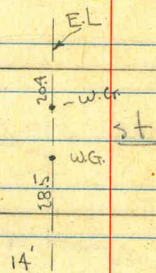 E.L
20.9
- W.G.
st
W.G.
28.5
14'